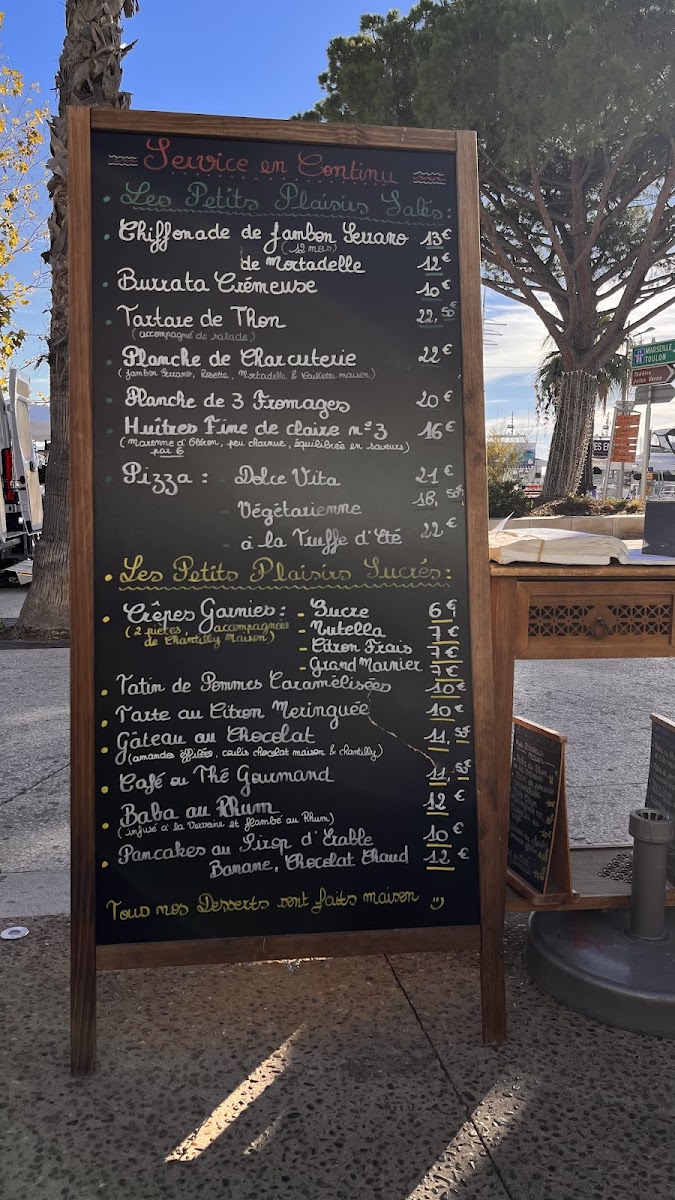 Service en Continu
Les Petits Plaisirs Salés :
Chiffonade de Jambon Serrano 13€
(12 mois)
de Mortadelle 12€
Burrata Crémeuse 10€
Tartare de Thon 22,50€
(accompagné de salade)
Planche de Charcuterie 22€
(Jambon Serrano, Rosette, Mortadelle & Caillette maison)
Planche de 3 Fromages 20€
Huîtres Fine de claire n°3 16€
(Marenne d'Oléron, peu charnue, équilibrées en saveurs)
par 6
Pizza : Dolce Vita 21€
Végétarienne 18,50€
à la Truffe d'Eté 22€
Les Petits Plaisirs Sucrés :
Crêpes Garnies : - Sucre 6€
(2 pièces accompagnées - Nutella 7€
de Chantilly Maison) - Citron Frais 7€
- Grand Marnier 7€
Tatin de Pommes Caramélisées 10€
Tarte au Citron Meringuée 10€
Gâteau au Chocolat 11,55€
(amandes éffilées, coulis chocolat maison & chantilly)
Café ou Thé Gourmand 11,55€
Baba au Rhum 12€
(infusé à la Verveine et flambé au Rhum)
Pancakes au Sirop d'Erable 10€
Banane, Chocolat Chaud 12€
Tous nos Desserts sont faits maison
MARSEILLE
TOULON
Théâtre
Jules Verne